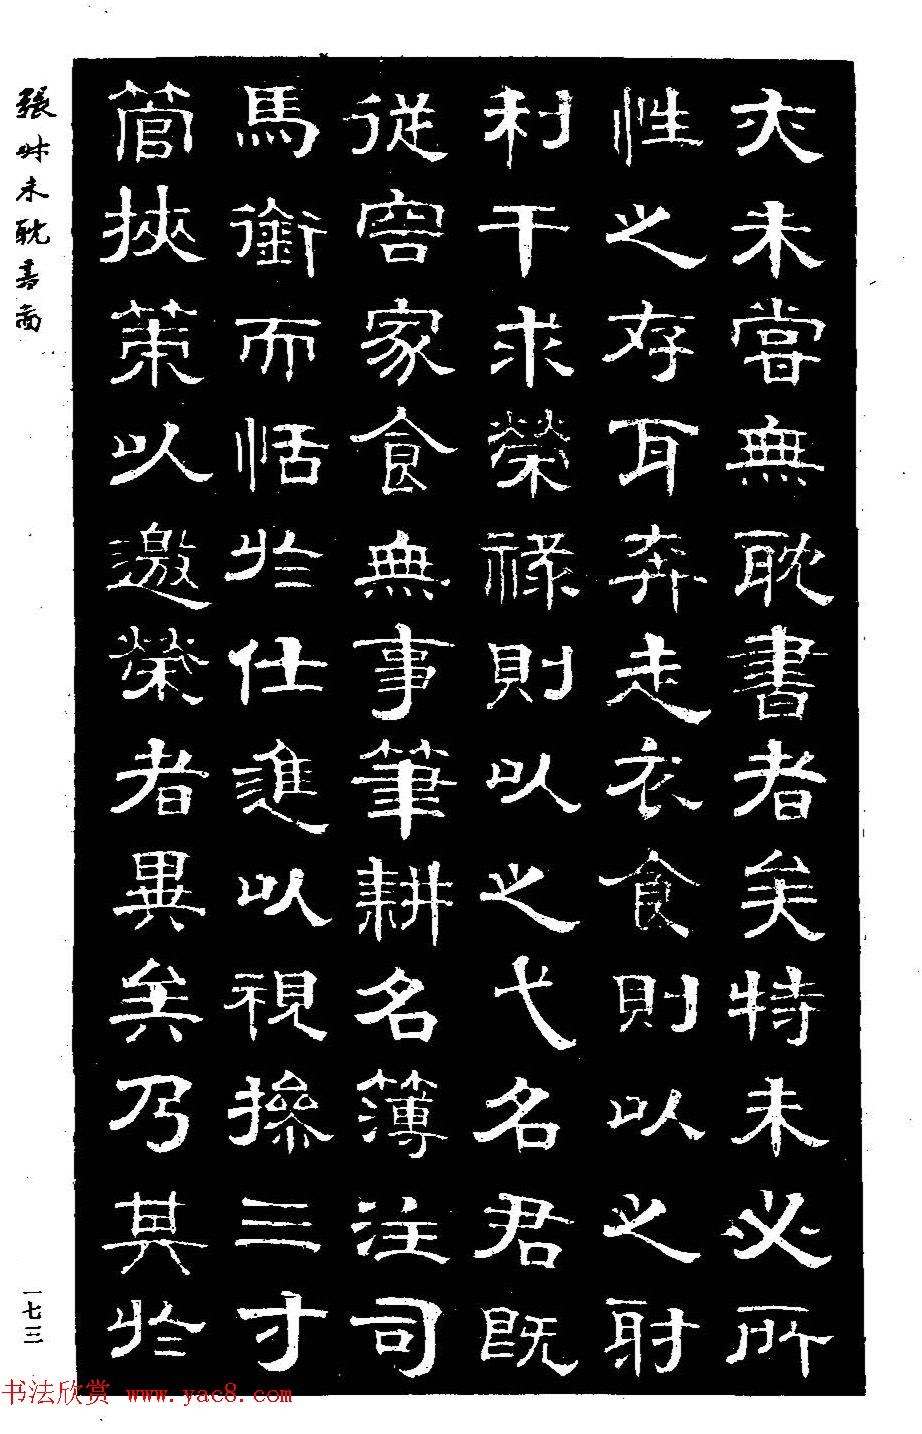 亦未嘗無耽書者矣特未必所
性之存耳奔走衣食則以之射
利干求榮祿則以之弋名君既
從容家食無事筆耕名簿注司
馬銜而恬於仕進以視操三寸
管挾策以邀榮者異矣乃其於
張叔未耽書啚
一七三
书法欣赏 www.yac8.com